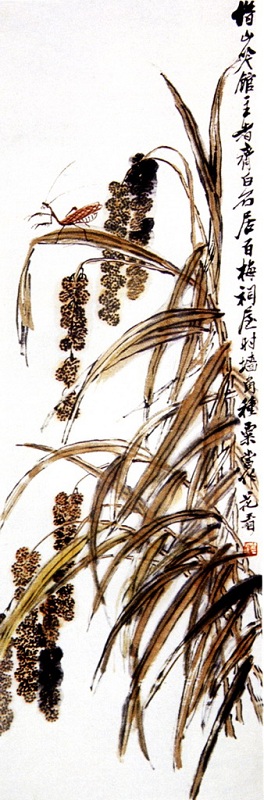 借山吟館主者齊白石居百梅祠屋時墻角種粟當作花看